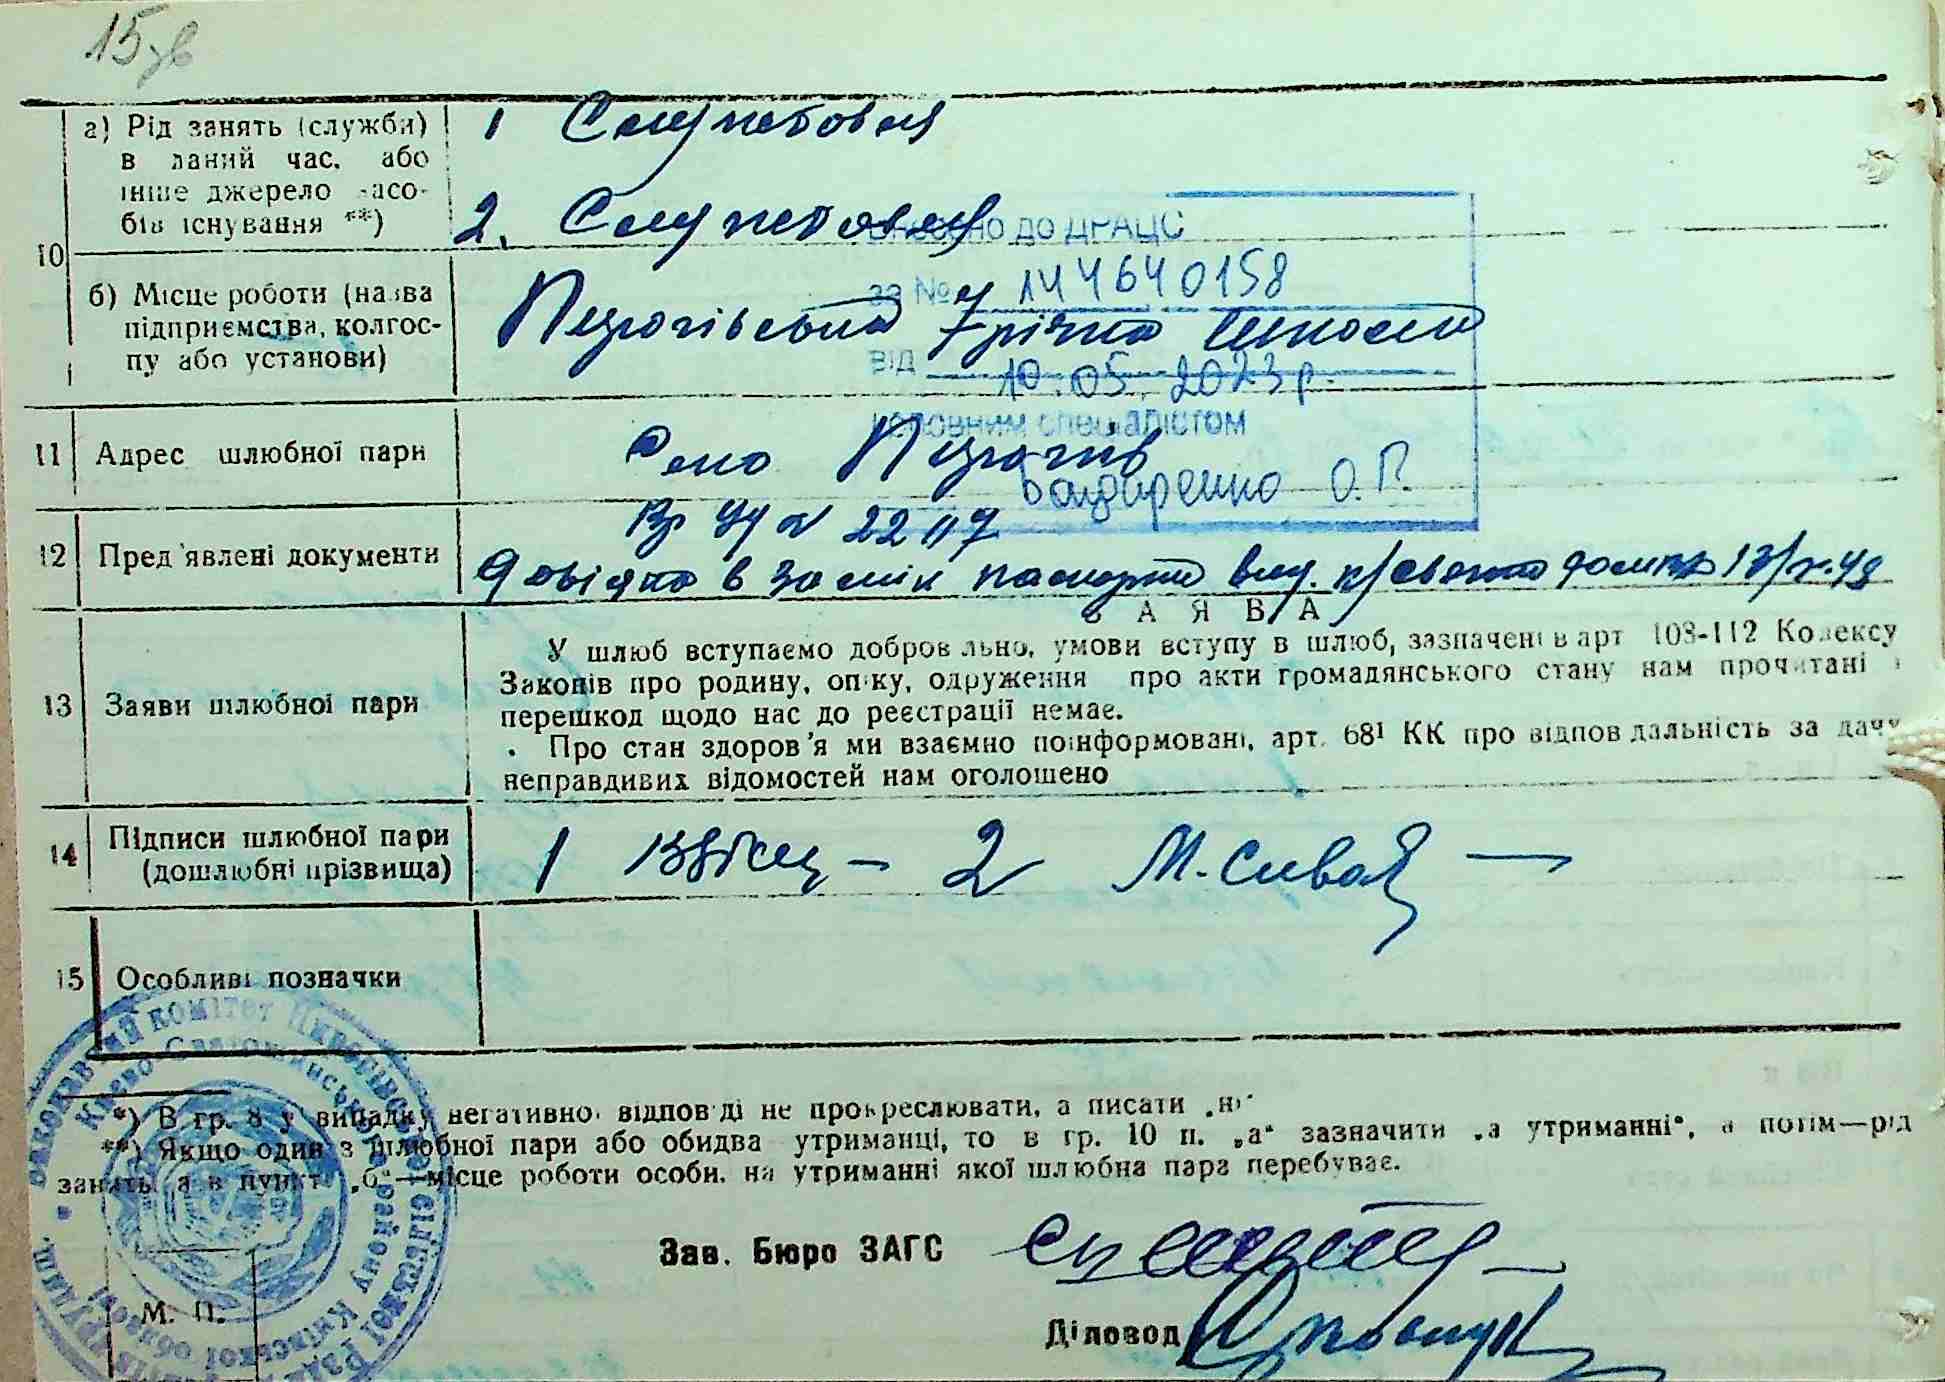 15 зв
10
а) Рід занять (служби)
в даний час, або
інше джерело засо-
бів існування **)
1 Службовец
2. Службовец
б) Місце роботи (назва
підприємства, колгос-
пу або установи)
Пирогівська 7 річна школа
Внесено до ДРАЦС
за № 144640158
від 10.05.2023 р.
головним спеціалістом
О.П.
11 Адрес шлюбної пари
Село Пирогів
12 Пред'явлені документи
22117
Довідка в замін паспорта вид.
ЗАЯВА
13 Заяви шлюбної пари
У шлюб вступаємо добровільно, умови вступу в шлюб, зазначені в арт 108-112 Кодексу
Законів про родину, опіку, одруження про акти громадянського стану нам прочитані і
перешкод щодо нас до реєстрації немає.
Про стан здоров'я ми взаємно поінформовані, арт. 68¹ КК про відповідальність за дачу
неправдивих відомостей нам оголошено
14 Підписи шлюбної пари
(дошлюбні прізвища)
1 2 М. Сивай
15 Особливі позначки
*) В гр. 8 у випадку негативної відповіді не прокреслювати, а писати „ні"
**) Якщо один з шлюбної пари або обидва утриманці, то в гр. 10 п. „а" зазначити „а утриманні", а потім—рід
занять, а в пункті „б"—місце роботи особи, на утриманні якої шлюбна пара перебуває.
Зав. Бюро ЗАГС
Діловод
М. П.
Виконавчий комітет Пирогівської сільської Ради депутатів трудящ.
Києво-Святошинського району Київської області